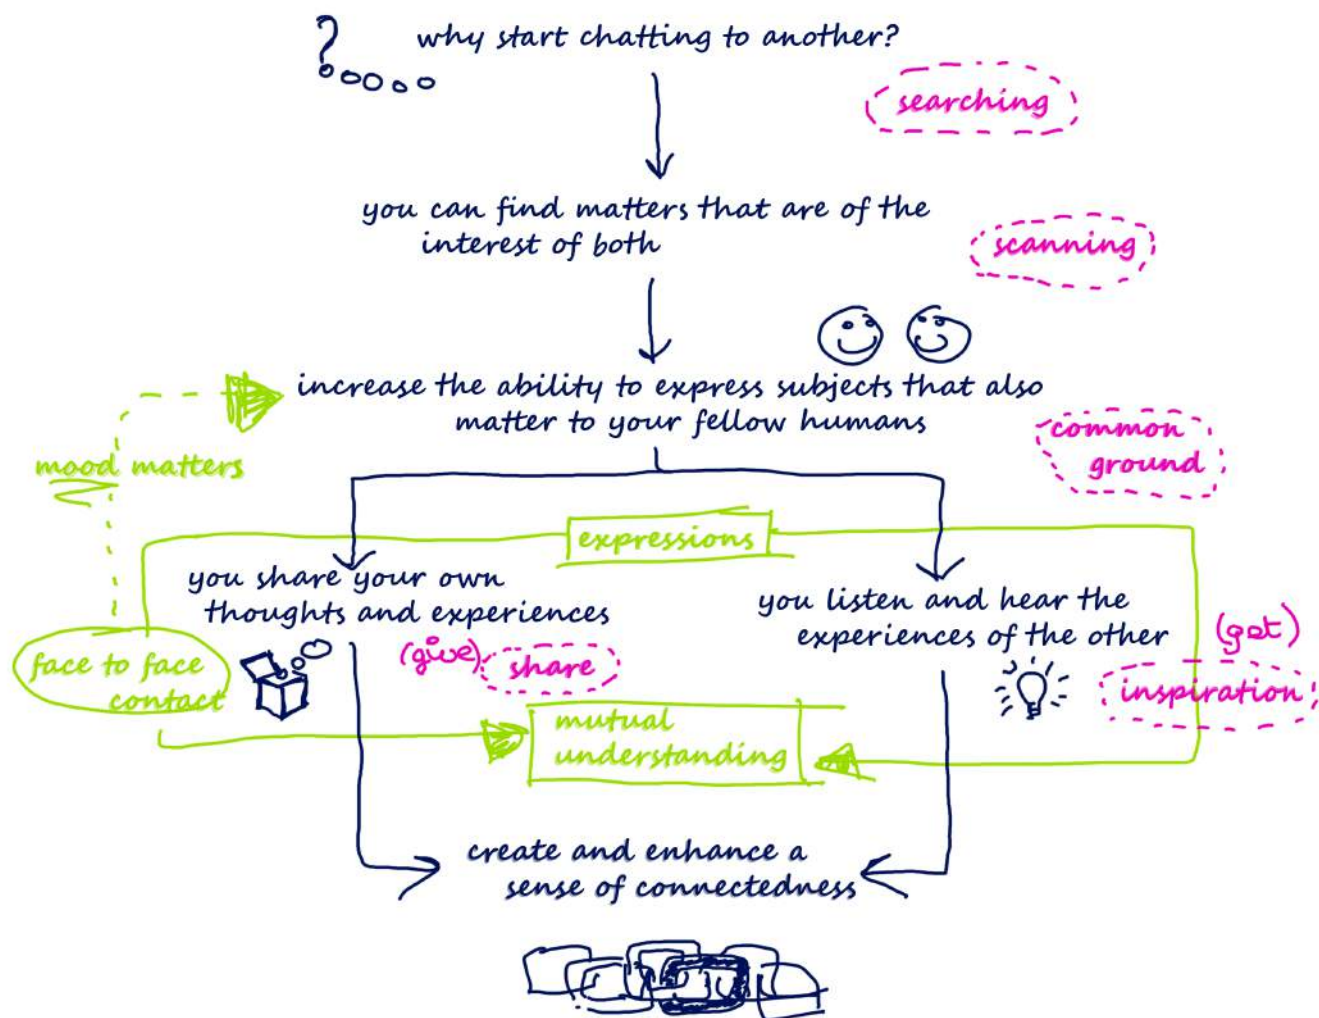 ? why start chatting to another?
searching
you can find matters that are of the
interest of both
scanning
increase the ability to express subjects that also
matter to your fellow humans
common
ground
mood matters
expressions
you share your own
thoughts and experiences
you listen and hear the
experiences of the other
(get)
face to face
contact
(give) share
inspiration
mutual
understanding
create and enhance a
sense of connectedness